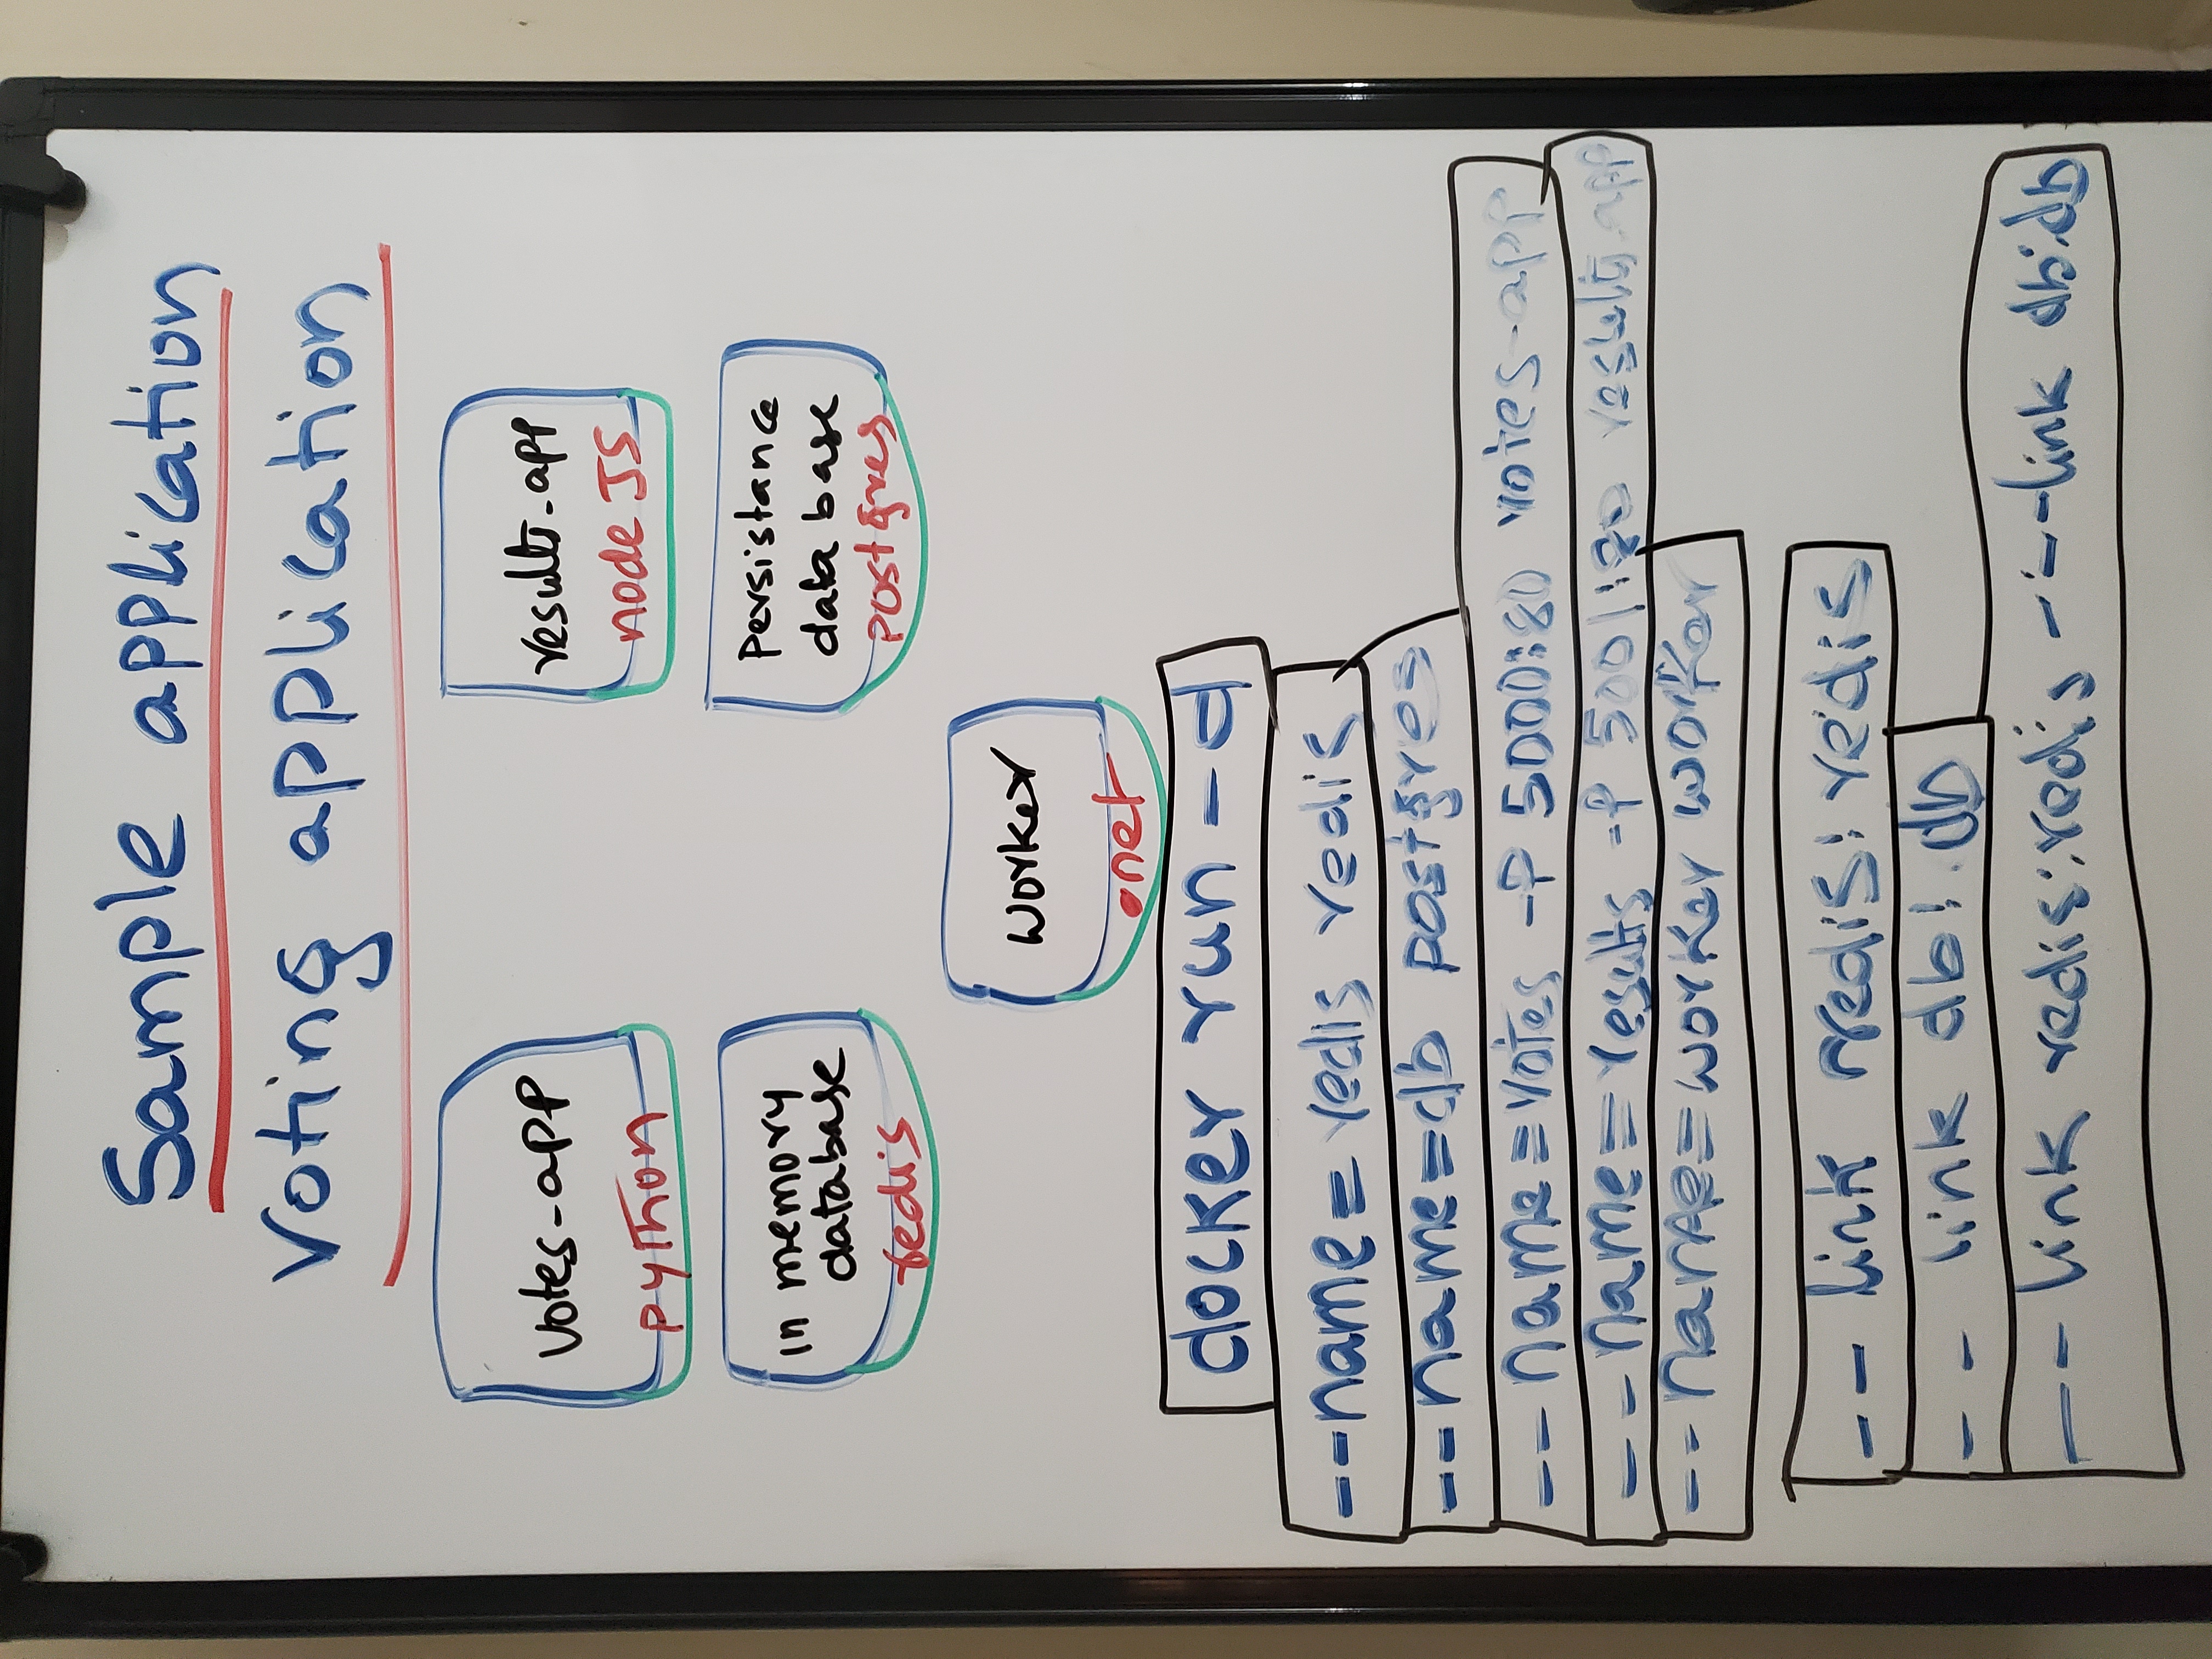 Sample application
Voting application
votes-app
python
results-app
node JS
in memory
database
redis
Persistance
data base
postgres
worker
.net
docker run -d
--name=redis redis
--name=db postgres
-- name=votes -P 5000:80 votes-app
-- name=results -P 5001:80 results-app
-- name=worker worker
-- link redis:redis
-- link db:db
-- link redis:redis ---link db:db